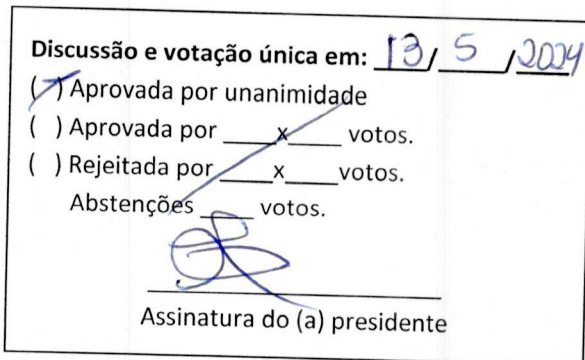 Discussão e votação única em: 13/ 5 /2024
(✓) Aprovada por unanimidade
( ) Aprovada por ____x____ votos.
( ) Rejeitada por ____x____votos.
Abstenções ____ votos.
Assinatura do (a) presidente